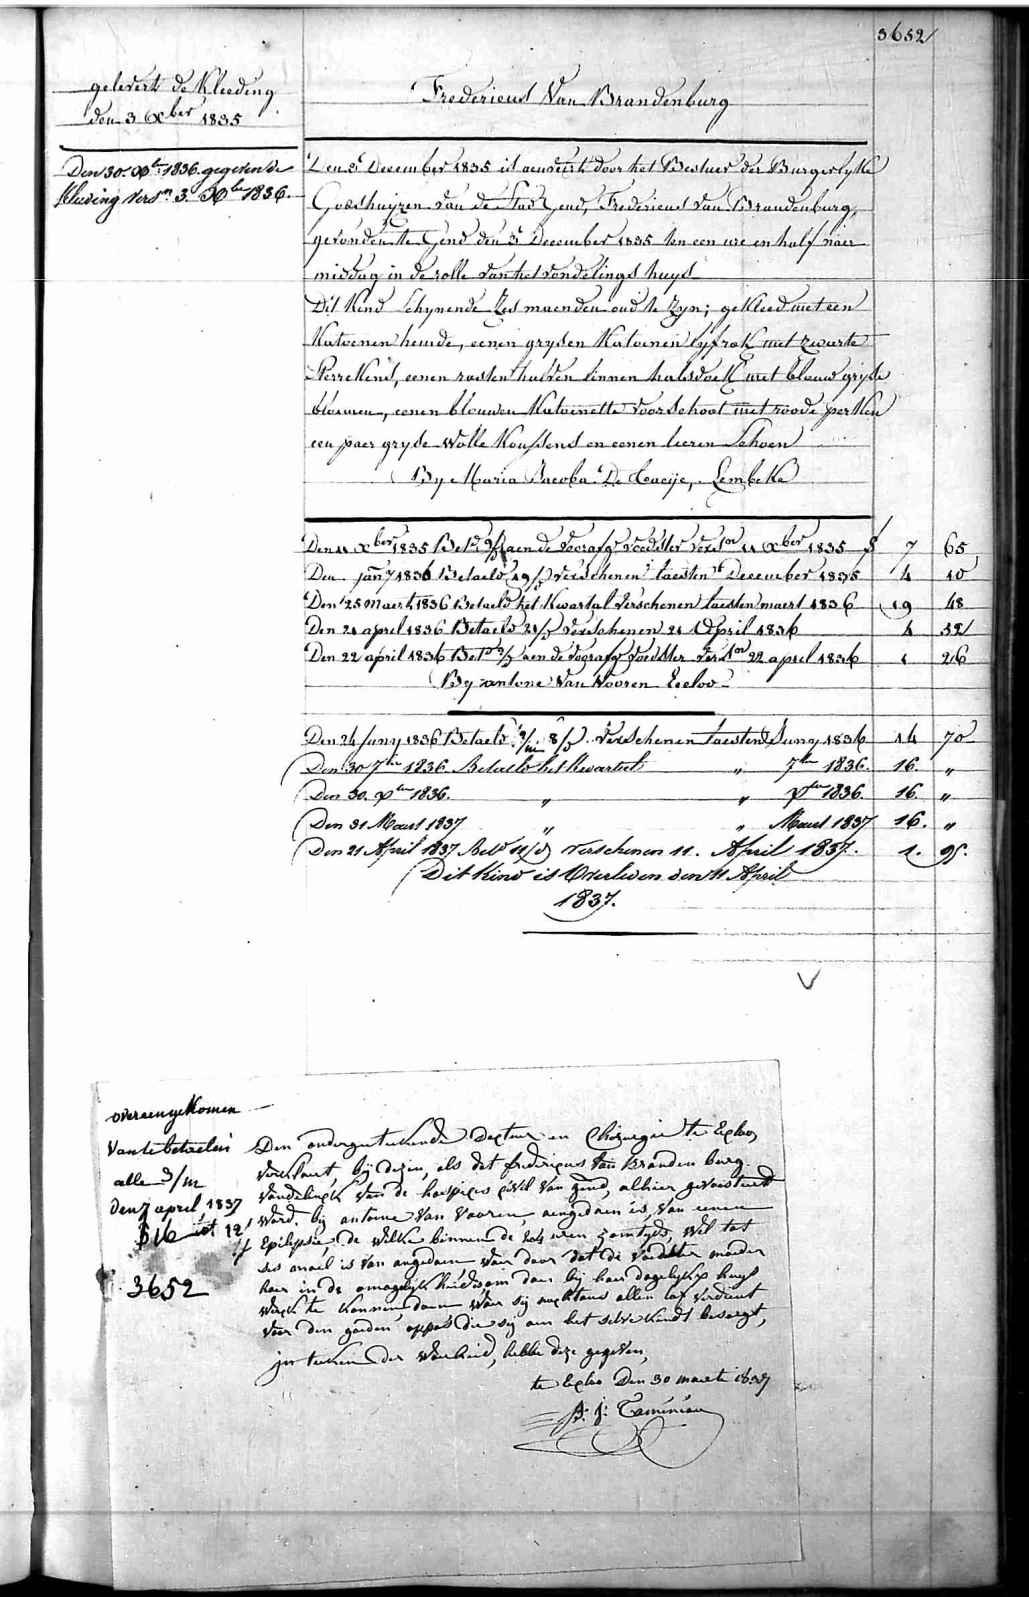 3652
gelevert de Kleeding
den 3 Xber 1835
Den 30 Xber 1836 gegeven de
Kleeding vers.n 3 Xber 1836.
Fredericus Van Brandenburg
Den 3e December 1835 is aenveirt door het Bestuer der Burgerlyke
Godshuyzen van de Stad Gend, Fredericus van Brandenburg,
gevonden te Gend den 3e December 1835 ten een ure en half naer
middag in de rolle van het vondelings huys
Dit Kind schynende zes maenden oud te zyn; gekleed met een
Katoenen hemde, eenen grysen Katoenen lyfrok met zwarte
Perrekens, eenen rosten halven linnen halsdoek met blauw gryse
bloemen, eenen blouwen Katoinette voorschoot met roode perken
een paer gryse wolle Koussens en eenen leeren Schoen
By Maria Jacoba De Caeije, Lembeke
Den 11 Xber 1835 Bet.d aen de voorafg voedster vers.n 11 Xber 1835 f 7 65
Den jan 7 1836 Betaeld verschenen laesten December 1835 4 10
Den 25 maert 1836 Betaeld het Kwartal verschenen laesten maert 1836 19 48
Den 21 april 1836 Betaeld 21/ verschenen 21 April 1836 4 32
Den 22 april 1836 Bet.d aen de voorafg voedster vers.n 22 april 1836 26
By antone Van Vooren Eecloo
Den 24 Juny 1836 Betaeld 2/m 8/ verschenen laesten Juny 1836 14 70
Den 30 7ber 1836 Betaeld het Kwartal " 7ber 1836. 16. "
Den 30. Xber 1836. " " Xber 1836. 16. "
Den 31 Maart 1837 " " Maart 1837 16. "
Den 21 April 1837 Bet.d 11/ verschenen 11. April 1837. 1. 95.
Dit Kind is Overleden den 11 April
1837.
overeengekomen
van te betaelen
alle 3/m
den 7 april 1837
f 16
3652
Den ondergeteekende Docteur en Chirurgie te Eecloo
verklaert, bij dezen, als dat fredericus Van Brandenburg
vondelingk van de hospices civil van gend, alhier gevoesterd
word, bij antone Van Vooren, aengedaen is, van eenen
Epilepsie de welke binnen de 24 uren zomtyds, wel tot
ses mael is van aengedaen waer door dat de voedster moeder
haer in de omogelijkheid daer bij haer dagelijkx huys
werck te konnen doen waer sij nogtans allen lof verdient
voor den goeden oppas die sij aen het selve kindt besorgt,
in teeken der waerheid, hebbe deze gegeven,
te Eecloo Den 30 maerte 1837
J: Taminiau